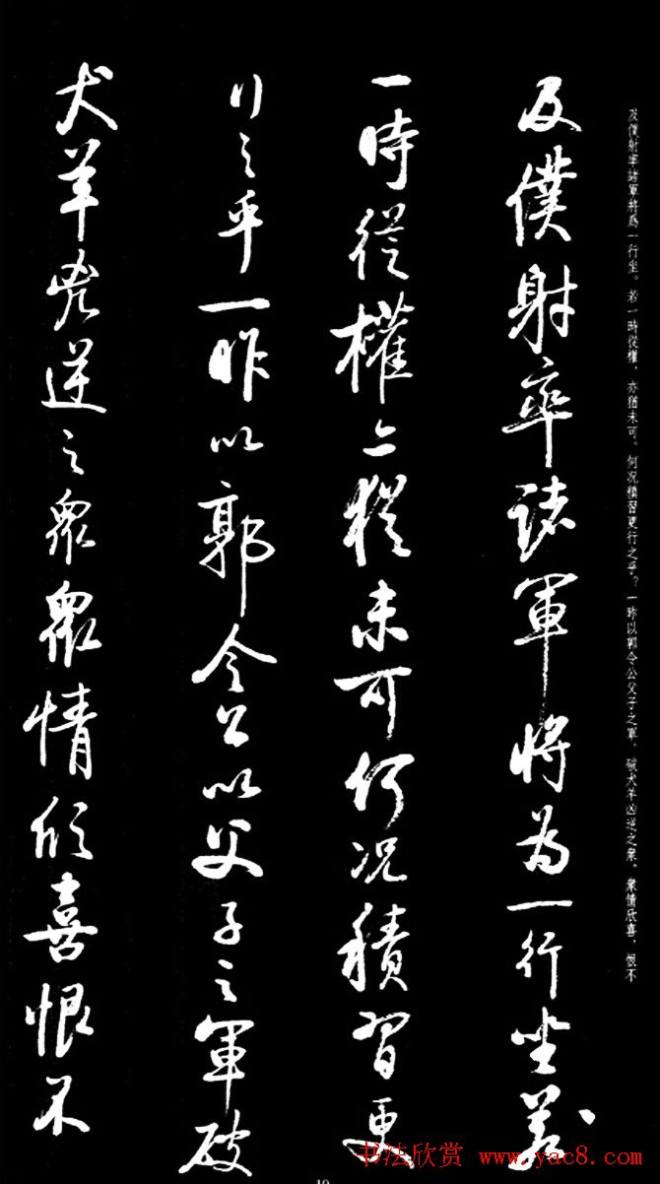 及僕射率諸軍將爲一行坐。若一時從權，亦猶未可。何況積習更行之乎？一昨以郭令公父子之軍，破犬羊凶逆之衆，衆情欣喜，恨不
及僕射率諸軍将為一行坐若
一時從權亦猶未可何况積習更
行之乎一昨以郭令公以父子之軍破
犬羊兇逆之衆衆情欣喜恨不
书法欣赏 www.yac8.com